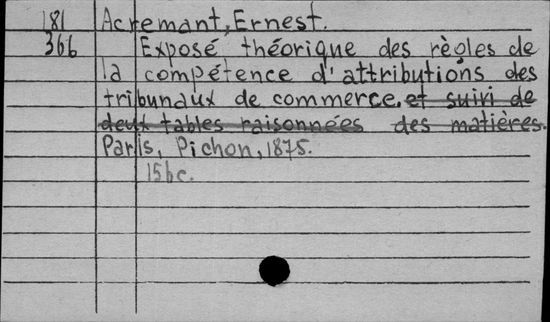 181 Acremant, Ernest.
366 Exposé théorique des règles de
la compétence d'attributions des
tribunaux de commerce. et suivi de
deux tables raisonnées des matières.
Paris, Pichon, 1875.
156c.